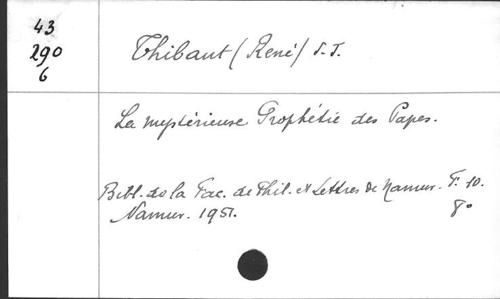 43
290
6
Thibaut (René) S.J.
La mystérieuse Prophétie des Papes.
Bibl. de la Fac. de Phil. et Lettres de Namur. F. 10.
Namur. 1951. 8°